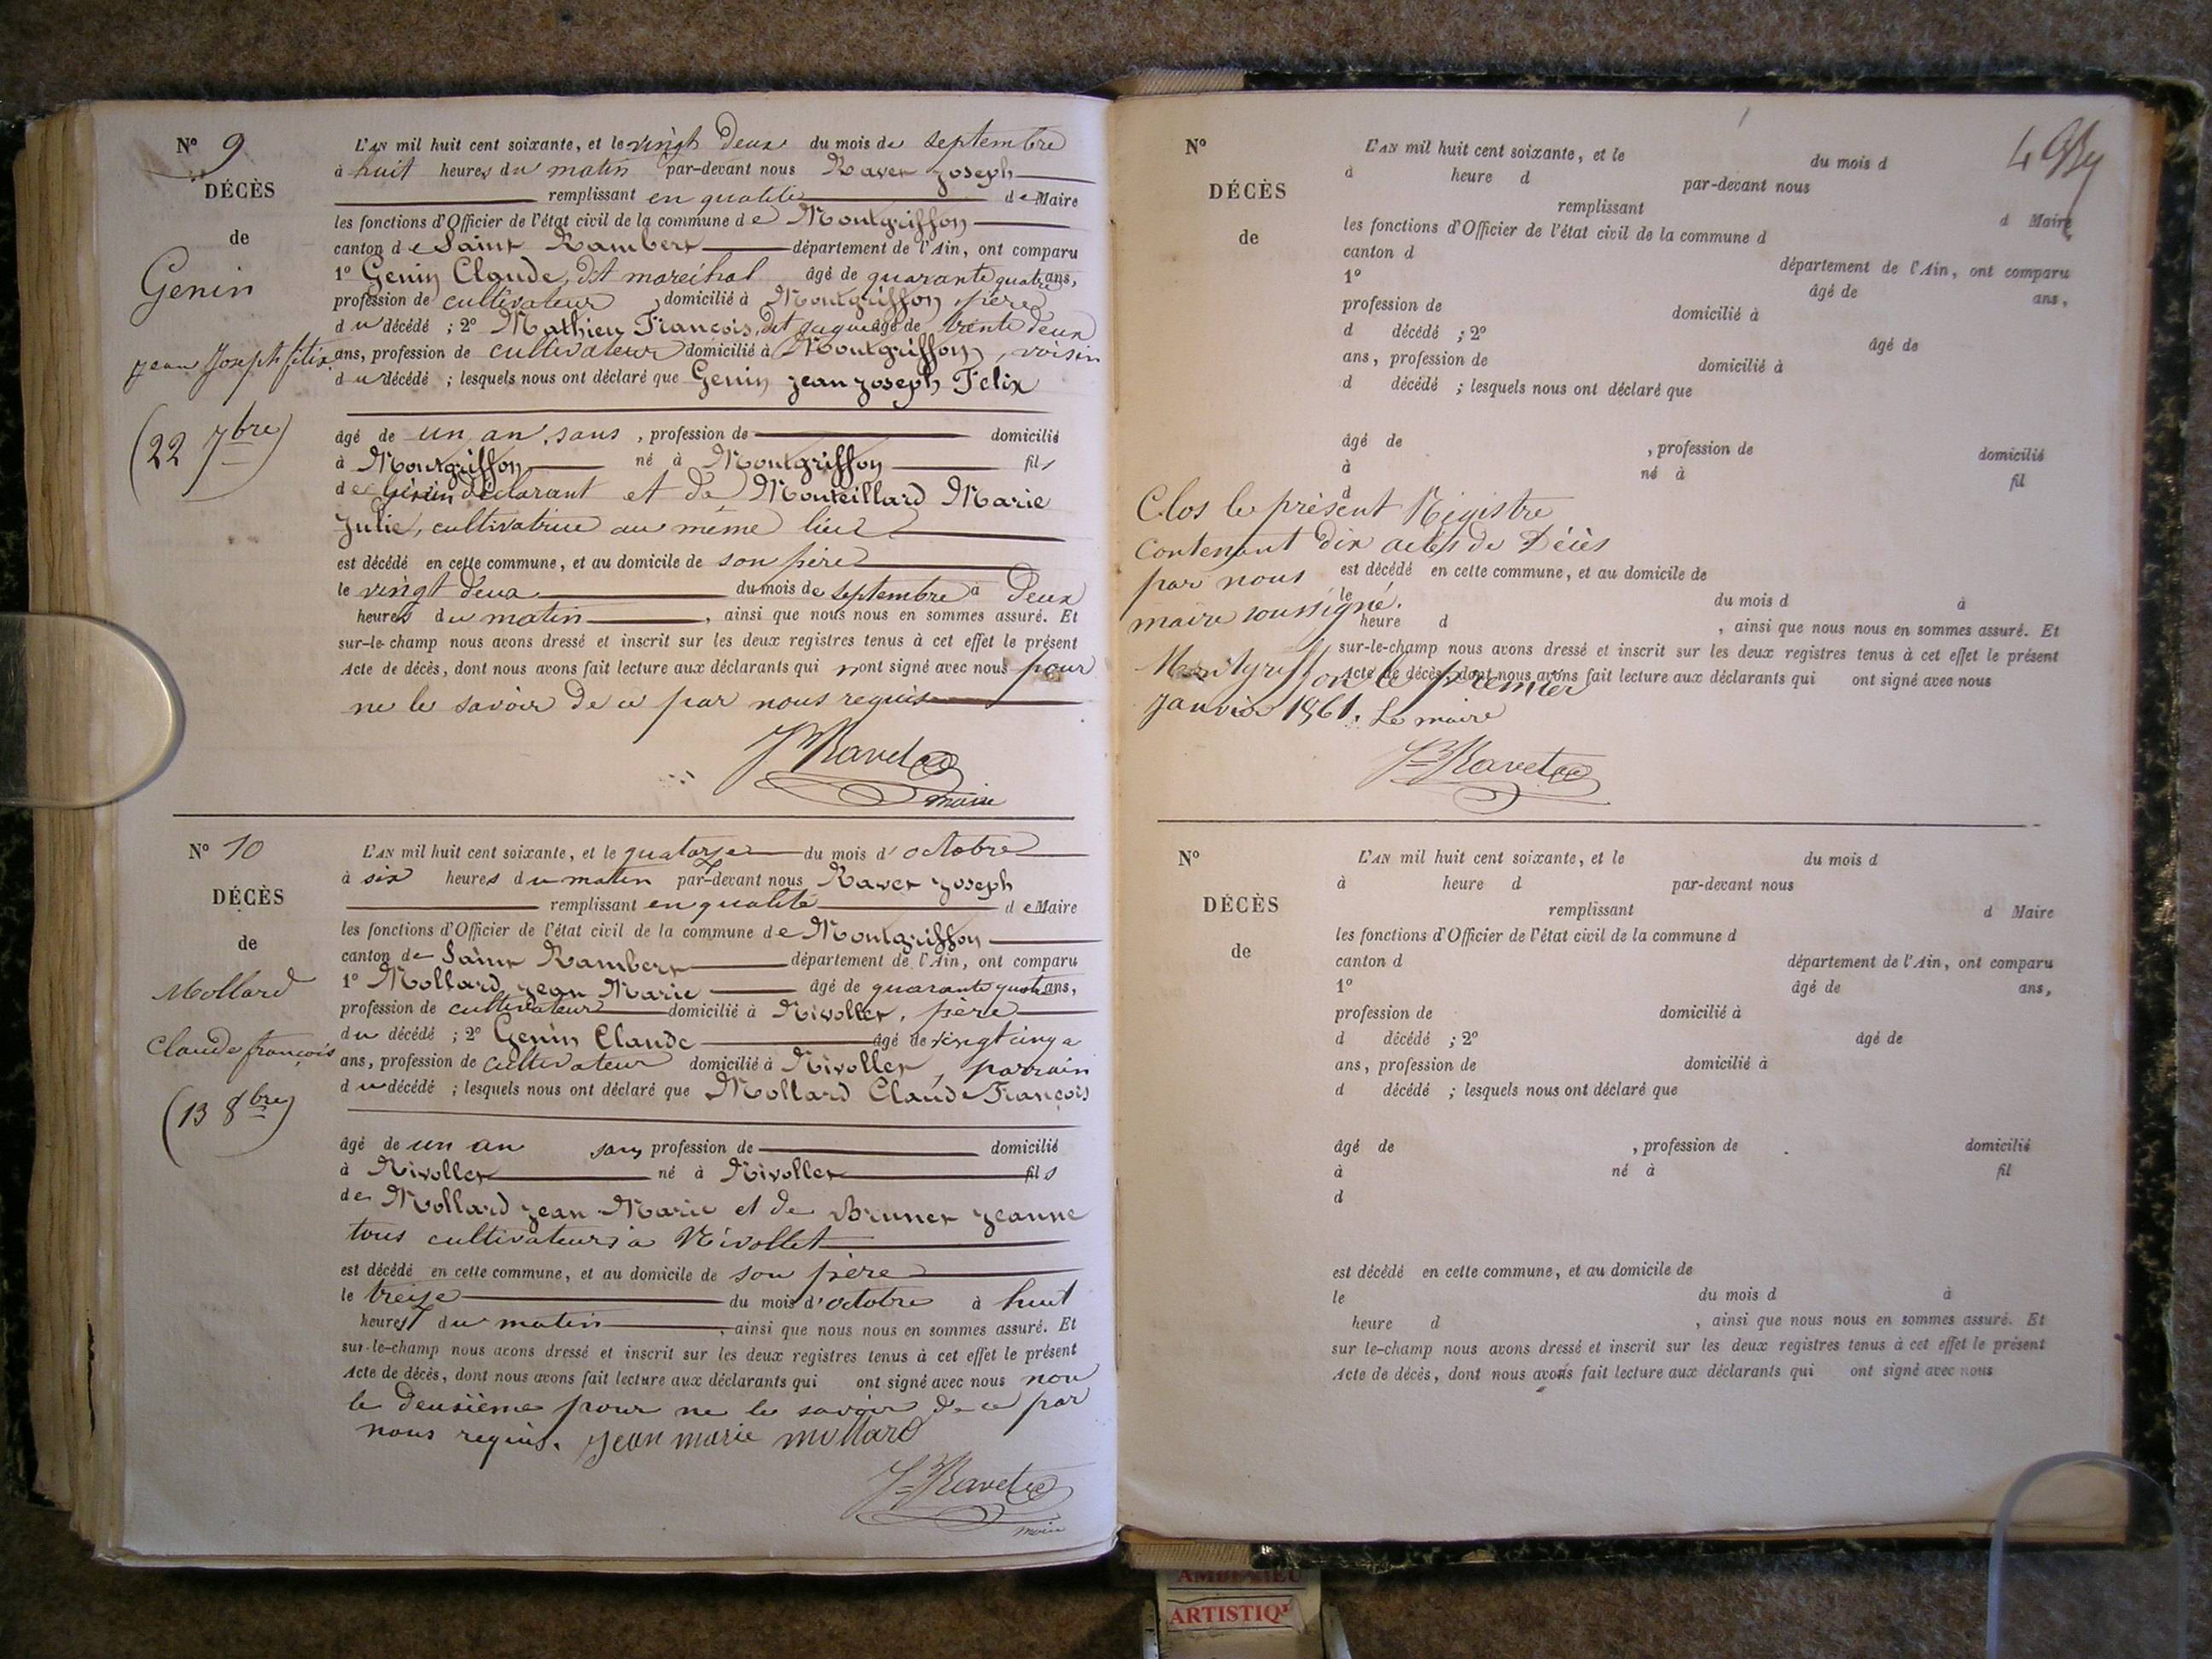 N° 9
DÉCÈS
de
Genin
jean Joseph félix.
(22 7bre)
L'AN mil huit cent soixante, et le vingt deux du mois de septembre
à huit heures du matin par-devant nous Ravet Joseph
remplissant en qualité de Maire
les fonctions d'Officier de l'état civil de la commune de Montgriffon
canton de Saint Rambert département de l'Ain, ont comparu
1° Genin Claude, dit maréchal âgé de quarante quatre ans,
profession de cultivateur, domicilié à Montgriffon, père
du décédé ; 2° Mathieu François, dit âgé de trente deux
ans, profession de cultivateur domicilié à Montgriffon, voisin
du décédé ; lesquels nous ont déclaré que Genin jean joseph Felix
âgé de un an, sans, profession de domicilié
à Montgriffon né à Montgriffon fils
de Genin déclarant et de Monteillard Marie
Julie, cultivatrice au même lieu
est décédé en cette commune, et au domicile de son père
le vingt deux du mois de septembre à Deux
heures du matin, ainsi que nous nous en sommes assuré. Et
sur-le-champ nous avons dressé et inscrit sur les deux registres tenus à cet effet le présent
Acte de décès, dont nous avons fait lecture aux déclarants qui n'ont signé avec nous pour
ne le savoir de ce par nous requis
J Ravet
maire
N° 10
DÉCÈS
de
Mollard
Claude françois
(13 8bre)
L'AN mil huit cent soixante, et le quatorze du mois d'octobre
à six heures du matin par-devant nous Ravet joseph
remplissant en qualité de Maire
les fonctions d'Officier de l'état civil de la commune de Montgriffon
canton de Saint Rambert département de l'Ain, ont comparu
1° Mollard jean Marie âgé de quarante quatre ans,
profession de cultivateur domicilié à Nivollet, père
du décédé ; 2° Genin Claude âgé de vingt cinq
ans, profession de cultivateur domicilié à Nivollet, parrain
du décédé ; lesquels nous ont déclaré que Mollard Claude François
âgé de un an sans profession de domicilié
à Nivollet né à Nivollet fils
de Mollard jean Marie et de Brunet jeanne
tous cultivateurs à Nivollet
est décédé en cette commune, et au domicile de son père
le treize du mois d'octobre à huit
heures du matin, ainsi que nous nous en sommes assuré. Et
sur-le-champ nous avons dressé et inscrit sur les deux registres tenus à cet effet le présent
Acte de décès, dont nous avons fait lecture aux déclarants qui ont signé avec nous non
le deusième pour ne le savoir de ce par
nous requis. jean marie mollard
J Ravet
maire
N°
DÉCÈS
de
L'AN mil huit cent soixante, et le du mois d
à heure d par-devant nous
remplissant d Maire
les fonctions d'Officier de l'état civil de la commune d
canton d département de l'Ain, ont comparu
1° âgé de ans,
profession de domicilié à
d décédé ; 2° âgé de
ans, profession de domicilié à
d décédé ; lesquels nous ont déclaré que
âgé de , profession de domicilié
à né à fil
d
Clos le présent Régistre
contenant dix actes de Décès
par nous
est décédé en cette commune, et au domicile de
maire soussigné.
le du mois d à
heure d , ainsi que nous nous en sommes assuré. Et
sur-le-champ nous avons dressé et inscrit sur les deux registres tenus à cet effet le présent
Montgriffon le premier
Acte de décès, dont nous avons fait lecture aux déclarants qui ont signé avec nous
janvier 1861. Le maire
J Ravet
N°
DÉCÈS
de
L'AN mil huit cent soixante, et le du mois d
à heure d par-devant nous
remplissant d Maire
les fonctions d'Officier de l'état civil de la commune d
canton d département de l'Ain, ont comparu
1° âgé de ans,
profession de domicilié à
d décédé ; 2° âgé de
ans, profession de domicilié à
d décédé ; lesquels nous ont déclaré que
âgé de , profession de domicilié
à né à fil
d
est décédé en cette commune, et au domicile de
le du mois d à
heure d , ainsi que nous nous en sommes assuré. Et
sur le-champ nous avons dressé et inscrit sur les deux registres tenus à cet effet le présent
Acte de décès, dont nous avons fait lecture aux déclarants qui ont signé avec nous
ARTISTIQ